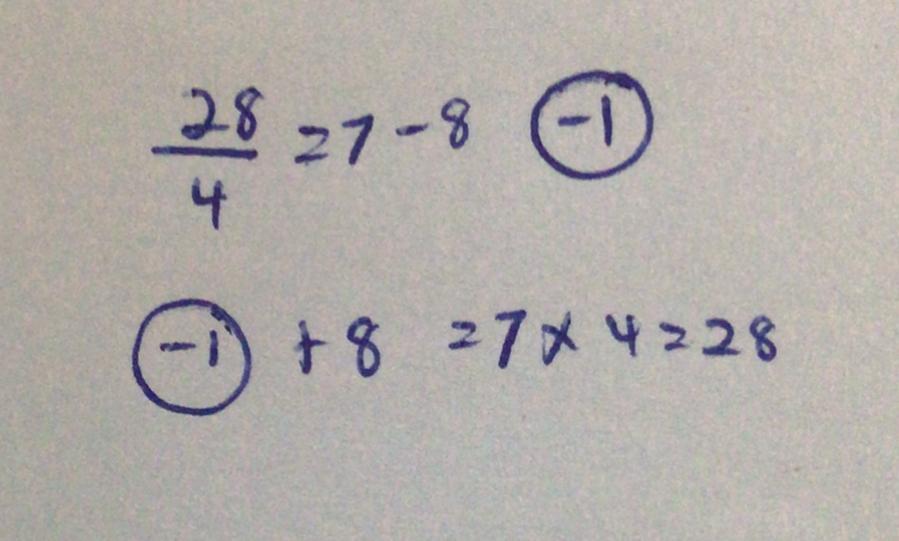 28/4 = 7 - 8 -1
-1 + 8 = 7 x 4 = 28